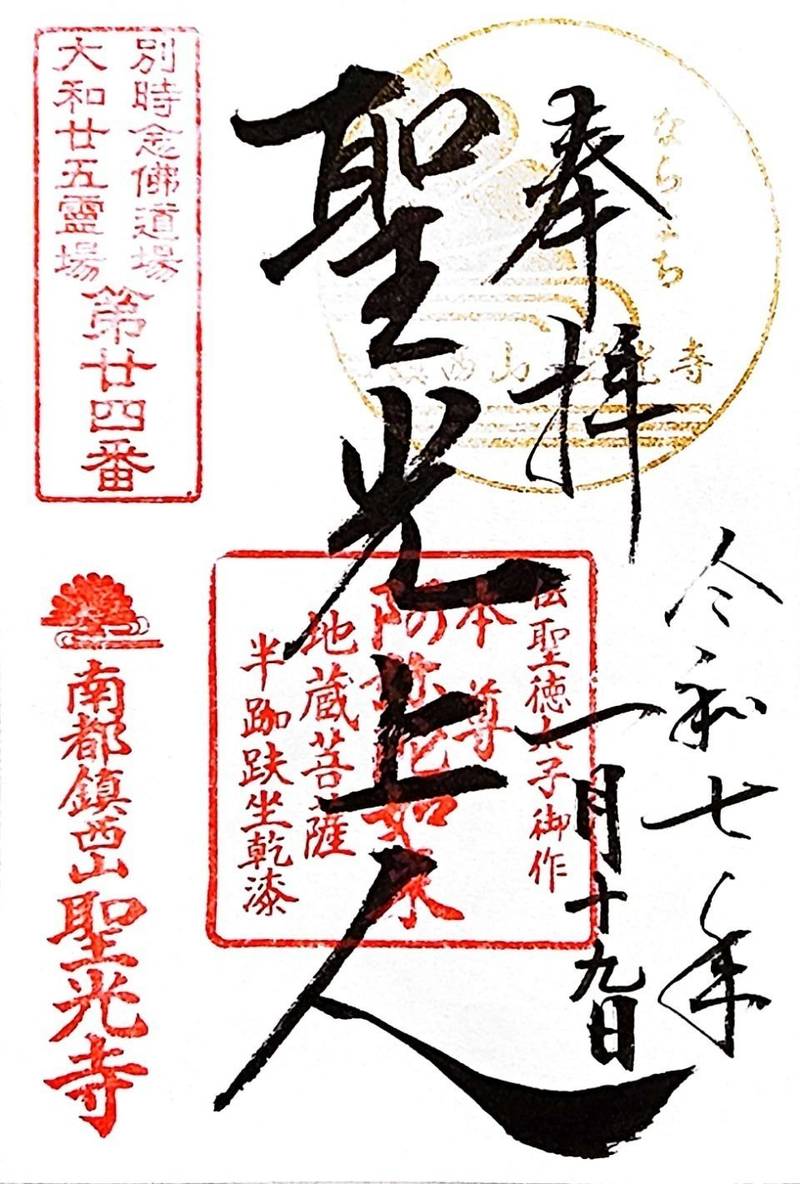 奉拝
ならまち
鎮西山 聖光寺
令和七年
一月十九日
聖光上人
伝聖徳太子御作
本尊
阿弥陀如来
地蔵菩薩
半跏趺坐乾漆
別時念佛道場
大和廿五靈場
第廿四番
南都鎮西山
聖光寺